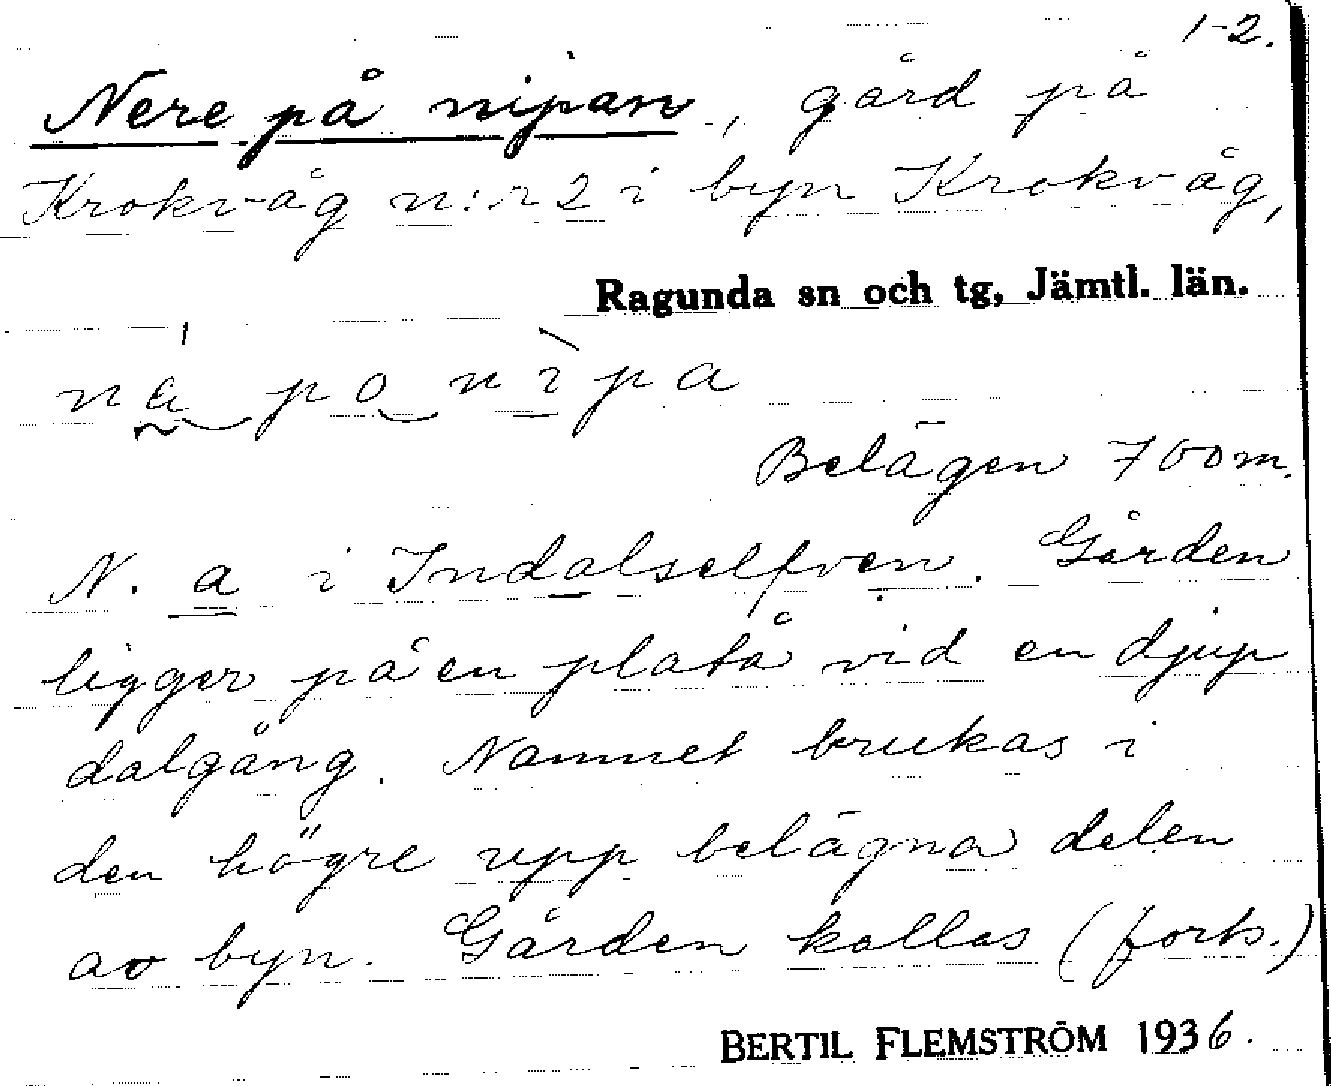 1-2.
Nere på nipan, gård på
Krokvåg n:r 2 i byn Krokvåg,
Ragunda sn och tg, Jämtl. län.
po nìpa
Belägen 700 m.
N. a i Indalselfven. Gården
ligger på en platå vid en djup
dalgång. Namnet brukas i
den högre upp belägna delen
av byn. Gården kallas (forts.)
BERTIL FLEMSTRÖM 1936.